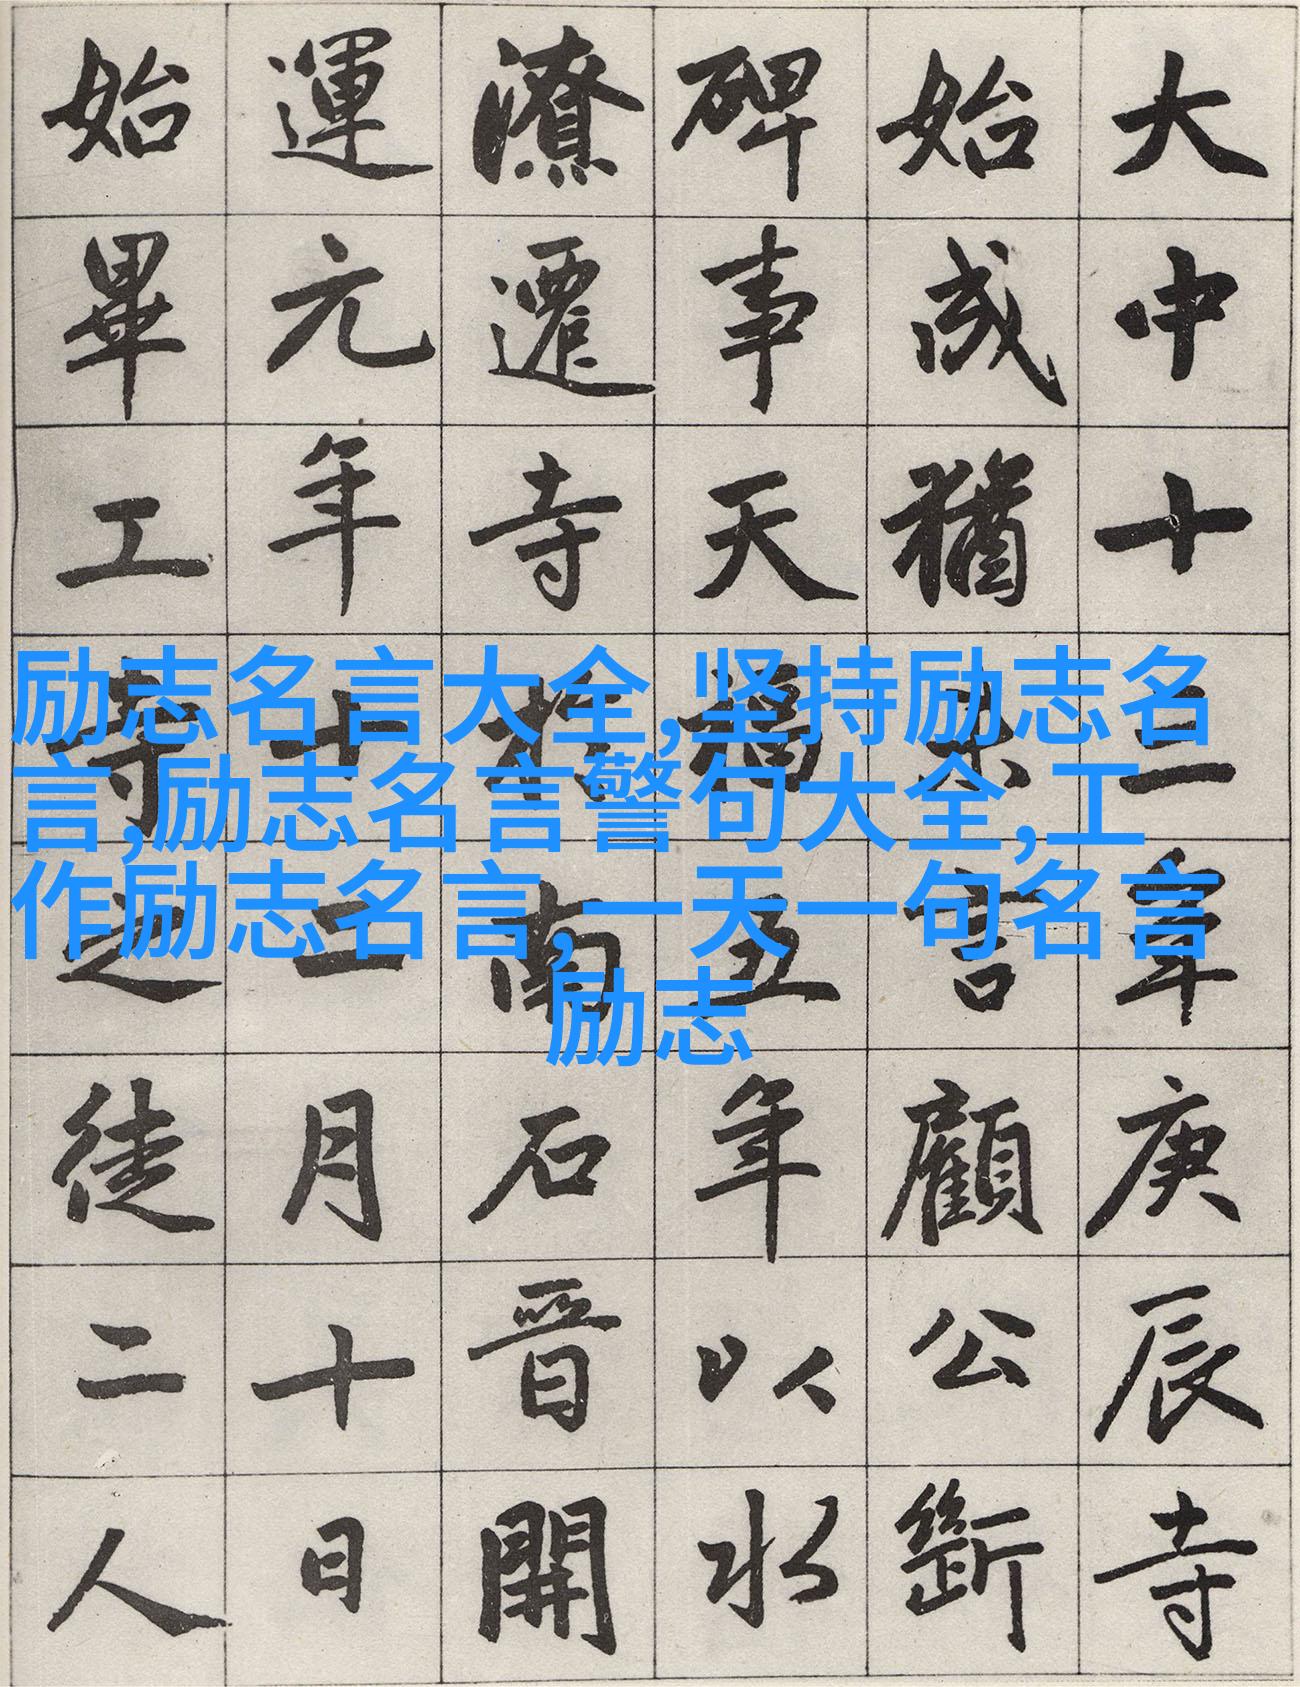 大中十三年庚辰寺
始成猶未言顧公斷
碑事天福五年以水
潦遷寺於南石晉開
運元年十二月十日
始畢工寺之徒二人
励志名言大全,坚持励志名
言,励志名言警句大全,工
作励志名言,一天一句名言
励志